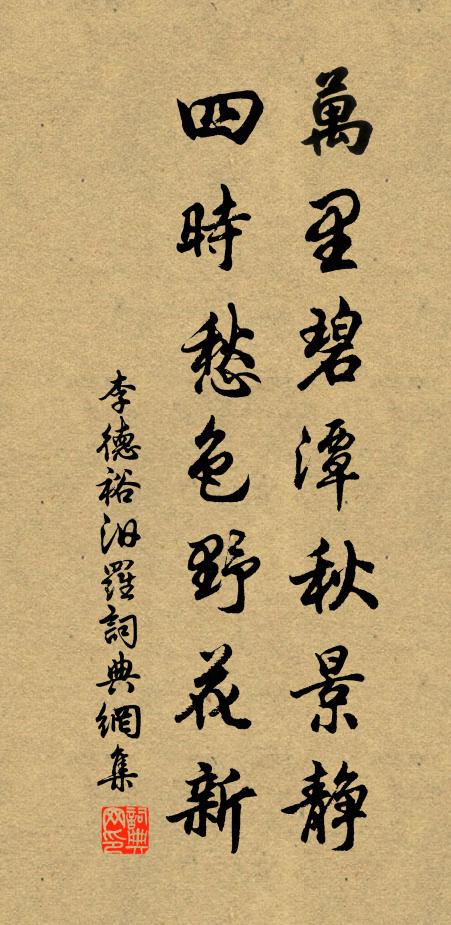 萬里碧潭秋景静
四時愁色野花新
李德裕汨羅詞典網集
詞典网印